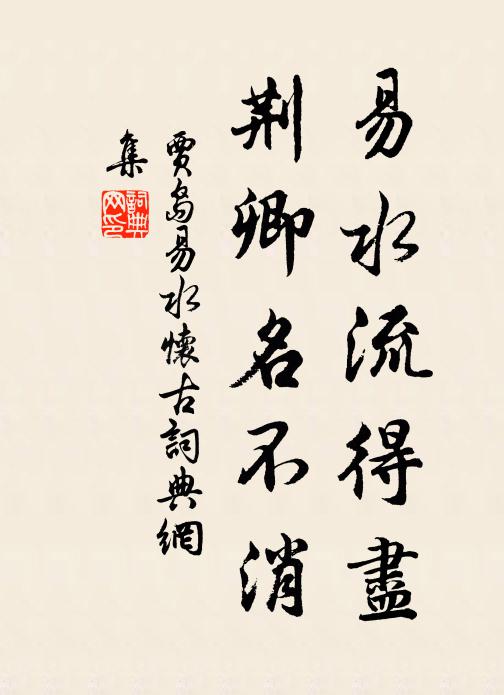 易水流得盡
荆卿名不消
賈島易水懷古詞典網
集
詞典
网印